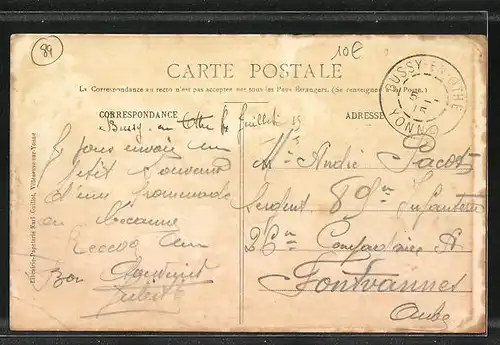 89
10€
CARTE POSTALE
La Correspondance au recto n'est pas acceptée par tous les Pays Étrangers. (Se renseigner à la Poste.)
CORRESPONDANCE
ADRESSE
BUSSY-EN-OTHE
YONNE
Bussy-en-Othe Juillet 15
Je vous envoie un
petit souvenir
d'une promenade
en bécanne
Recevez un
bon souvenir
Mr André Pacot
Sergent 89e Infanterie
26e Compagnie
Fontvannes
Aube
Librairie-Papeterie Karl-Guillot, Villeneuve-sur-Yonne